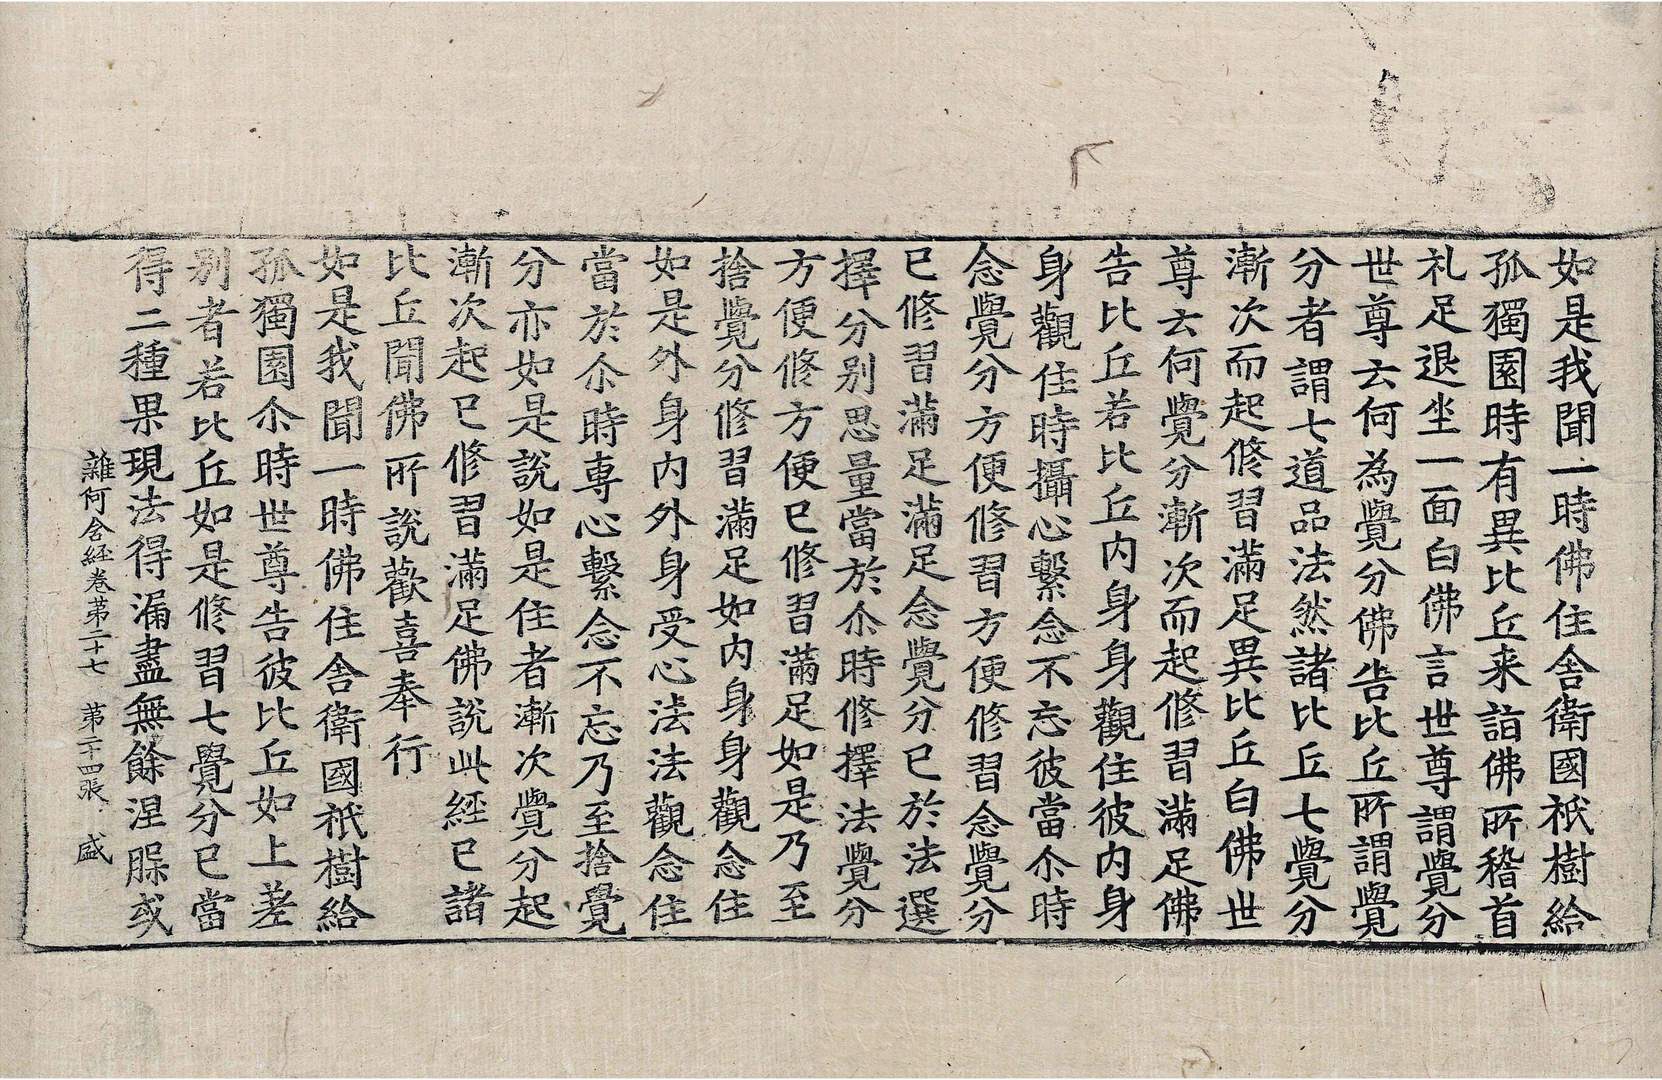 如是我聞一時佛住舍衛國祇樹給
孤獨園時有異比丘来詣佛所稽首
礼足退坐一面白佛言世尊謂覺分
世尊云何為覺分佛告比丘所謂覺
分者謂七道品法然諸比丘七覺分
漸次而起修習滿足異比丘白佛世
尊云何覺分漸次而起修習滿足佛
告比丘若比丘内身身觀住彼内身
身觀住時攝心繫念不忘彼當尒時
念覺分方便修習方便修習念覺分
已修習滿足滿足念覺分已於法選
擇分別思量當於尒時修擇法覺分
方便修方便已修習滿足如是乃至
捨覺分修習滿足如内身身觀念住
如是外身内外身受心法法觀念住
當於尒時專心繫念不忘乃至捨覺
分亦如是說如是住者漸次覺分起
漸次起已修習滿足佛說此經已諸
比丘聞佛所說歡喜奉行
如是我聞一時佛住舍衛國祇樹給
孤獨園尒時世尊告彼比丘如上差
別者若比丘如是修習七覺分已當
得二種果現法得漏盡無餘涅槃或
雜阿含經卷第二十七 第二十四張 盛